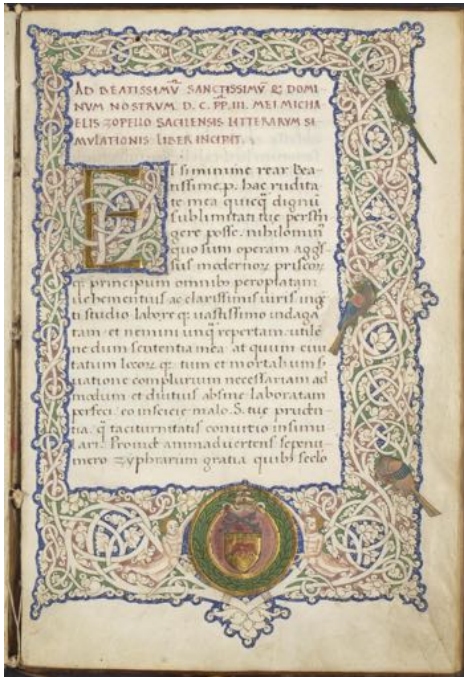 AD BEATISSIMV̄ SANCTISSIMV̄ & DOMI
NVM NOSTRVM. D. C. PP. III. MEI MICHA
ELIS ZOPELLO SACILENSIS LITTERARVM SI
MVLATIONIS LIBER INCIPIT.
ET si minime rear Bea
tissime. p. hac rudita
te mea quicq̄ dignū
sublimitati tue perstri
gere posse. nihilominꝰ
quo sum operam
sus modernoꝝ priscoꝝ
principum omnibꝰ
uehementius ac clarissimis uiris
ti studio labore uastissimo indaga
tam et nemini unq̄ repertam utile
ne dum sententia mea at quum ciui
tatum tum et mortalium
uatione complurium necessariam ad
modum et diutius absme laboratam
perfeci malo. S. tue prudē
tia taciturnitatis conuitio insimu
lari. animaduertens sepenu
mero zyphrarum gratia quibꝰ